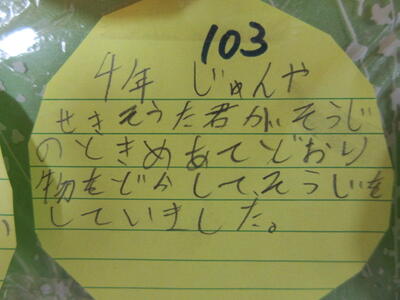 103
4年 じゅんや
せきそうた君が、そうじ
のときめあてどおり
物をどかして、そうじを
していました。